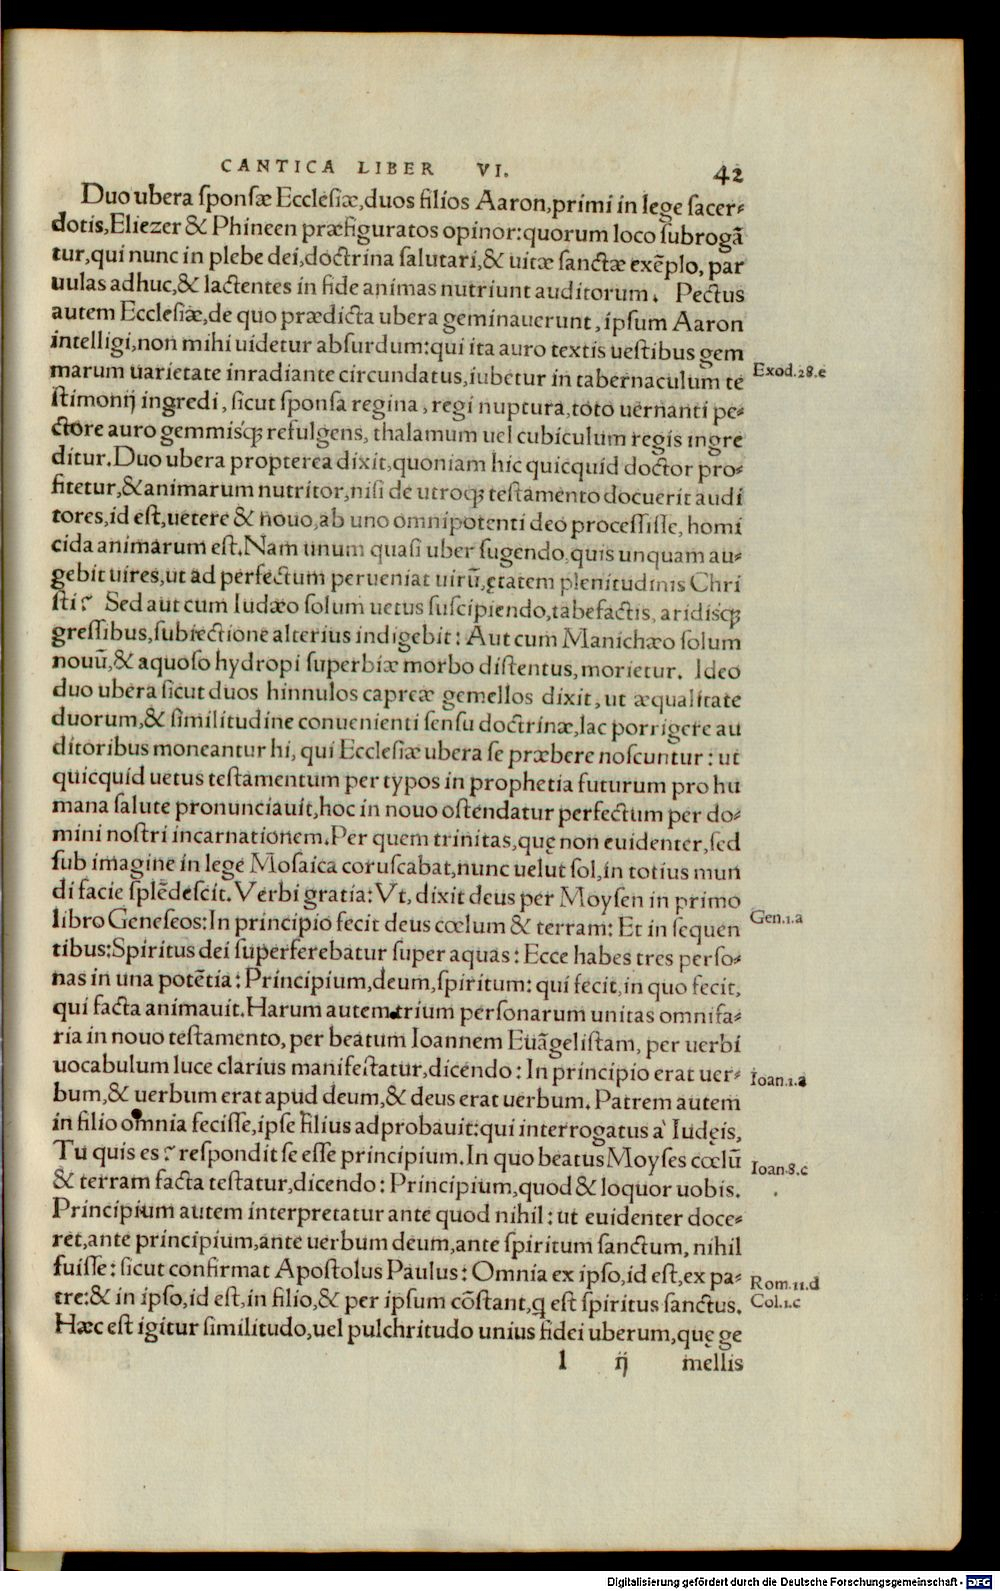 CANTICA LIBER VI. 42
Duo ubera ſponſæ Eccleſiæ,duos filios Aaron,primi in lege ſacer-
dotis,Eliezer & Phineen præfiguratos opinor:quorum loco ſubrogã
tur,qui nunc in plebe dei,doctrina ſalutari,& uitæ ſanctæ exẽplo, par
uulas adhuc,& lactentes in fide animas nutriunt auditorum. Pectus
autem Eccleſiæ,de quo prædicta ubera geminauerunt, ipſum Aaron
intelligi,non mihi uidetur abſurdum:qui ita auro textis ueſtibus gem
marum uarietate inradiante circundatus,iubetur in tabernaculum te Exod.28.e
ſtimonij ingredi, ſicut ſponſa regina, regi nuptura,toto uernanti pe-
ctore auro gemmisq́ꝫ refulgens, thalamum uel cubiculum regis ingre
ditur.Duo ubera propterea dixit,quoniam hic quicquid doctor pro-
fitetur,& animarum nutritor,niſi de utroqꝫ teſtamento docuerit audi
tores,id eſt,uetere & nouo,ab uno omnipotenti deo proceſſiſſe, homi
cida animarum eſt.Nam unum quaſi uber ſugendo,quis unquam au-
gebit uires,ut ad perfectum perueniat uirũ,ętatem plenitudinis Chri
ſti? Sed aut cum Iudæo ſolum uetus ſuſcipiendo,tabefactis, aridisq́ꝫ
greſſibus,ſubiectione alterius indigebit: Aut cum Manichæo ſolum
nouũ,& aquoſo hydropi ſuperbiæ morbo diſtentus, morietur. Ideo
duo ubera ſicut duos hinnulos capreæ gemellos dixit, ut æqualitate
duorum,& ſimilitudine conuenienti ſenſu doctrinæ,lac porrigere au
ditoribus moneantur hi, qui Eccleſiæ ubera ſe præbere noſcuntur: ut
quicquid uetus teſtamentum per typos in prophetia futurum pro hu
mana ſalute pronunciauit,hoc in nouo oſtendatur perfectum per do-
mini noſtri incarnationem.Per quem trinitas,quę non euidenter,ſed
ſub imagine in lege Moſaica coruſcabat,nunc uelut ſol,in totius mun
di facie ſplẽdeſcit. Verbi gratia: Vt, dixit deus per Moyſen in primo
libro Geneſeos:In principio fecit deus cœlum & terram: Et in ſequen Gen.1.a
tibus:Spiritus dei ſuperferebatur ſuper aquas: Ecce habes tres perſo-
nas in una potẽtia: Principium,deum,ſpiritum: qui fecit,in quo fecit,
qui facta animauit.Harum autem trium perſonarum unitas omnifa-
ria in nouo teſtamento, per beatum Ioannem Euãgeliſtam, per uerbi
uocabulum luce clarius manifeſtatur,dicendo: In principio erat uer- Ioan.1.a
bum,& uerbum erat apud deum,& deus erat uerbum. Patrem autem
in filio omnia feciſſe,ipſe filius adprobauit:qui interrogatus à Iudęis,
Tu quis es? reſpondit ſe eſſe principium.In quo beatus Moyſes cœlũ Ioan.8.c
& terram facta teſtatur,dicendo: Principium,quod & loquor uobis.
Principium autem interpretatur ante quod nihil: ut euidenter doce-
ret,ante principium,ante uerbum deum,ante ſpiritum ſanctum, nihil
fuiſſe: ſicut confirmat Apoſtolus Paulus: Omnia ex ipſo,id eſt,ex pa- Rom.11.d
tre:& in ipſo,id eſt,in filio,& per ipſum cõſtant,q eſt ſpiritus ſanctus. Col.1.c
Hæc eſt igitur ſimilitudo,uel pulchritudo unius fidei uberum,quę ge
l ij mellis
Digitalisierung gefördert durch die Deutsche Forschungsgemeinschaft - DFG